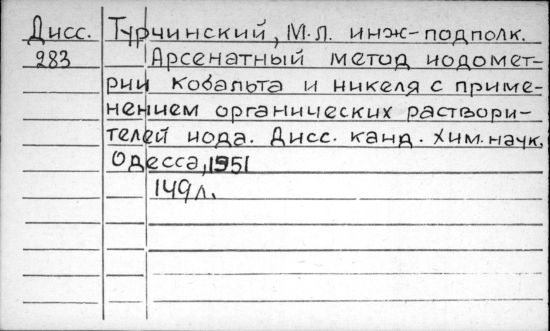 Дисс. Турчинский, М.Л. инж-подполк.
283 Арсенатный метод иодомет-
рии кобальта и никеля с приме-
нением органических раствори-
телей иода. Дисс. канд. Хим. наук.
Одесса, 1951
149л.